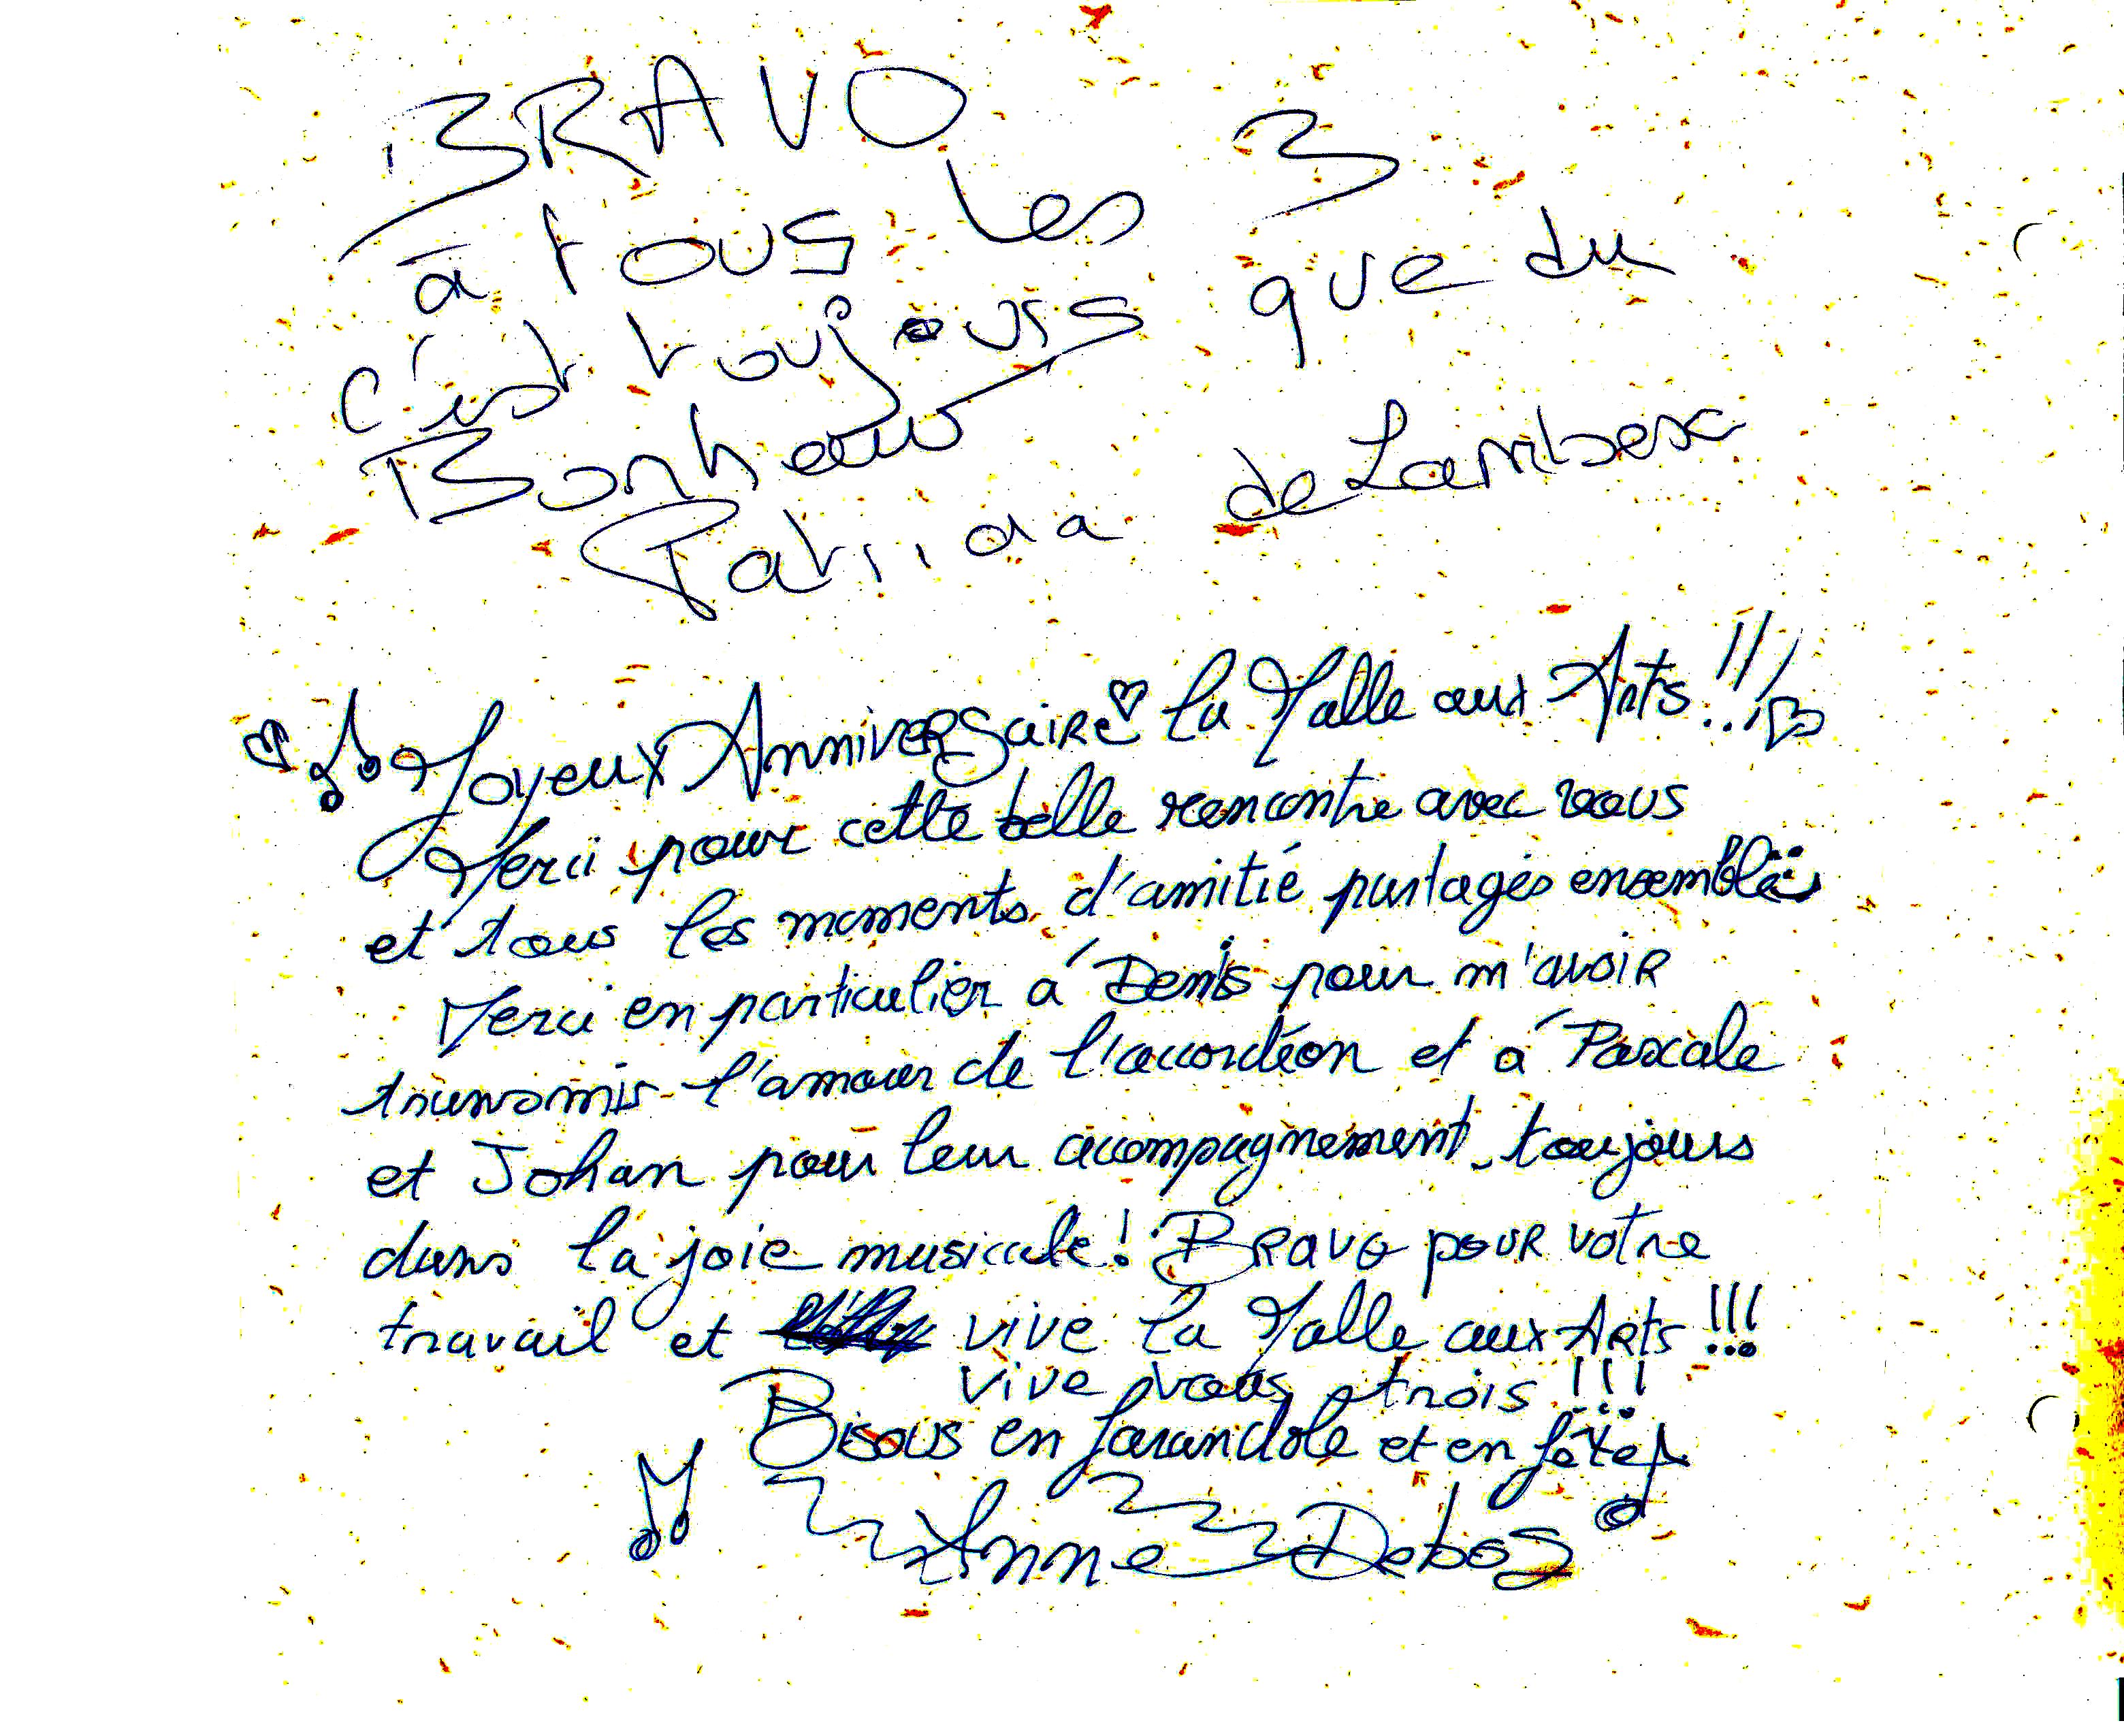 BRAVO
à tous les 3
c'est toujours que du
Bonheur
Patricia de Lambesc
Joyeux Anniversaire la Malle aux Arts !!!
Merci pour cette belle rencontre avec vous
et tous les moments d'amitié partagés ensemble
Merci en particulier à Denis pour m'avoir
transmis l'amour de l'accordéon et à Pascale
et Johan pour leur accompagnement, toujours
dans la joie musicale ! Bravo pour votre
travail et vive la Malle aux Arts !!!
vive vous trois !!!
Bisous en farandole et en fête
Anne Debos